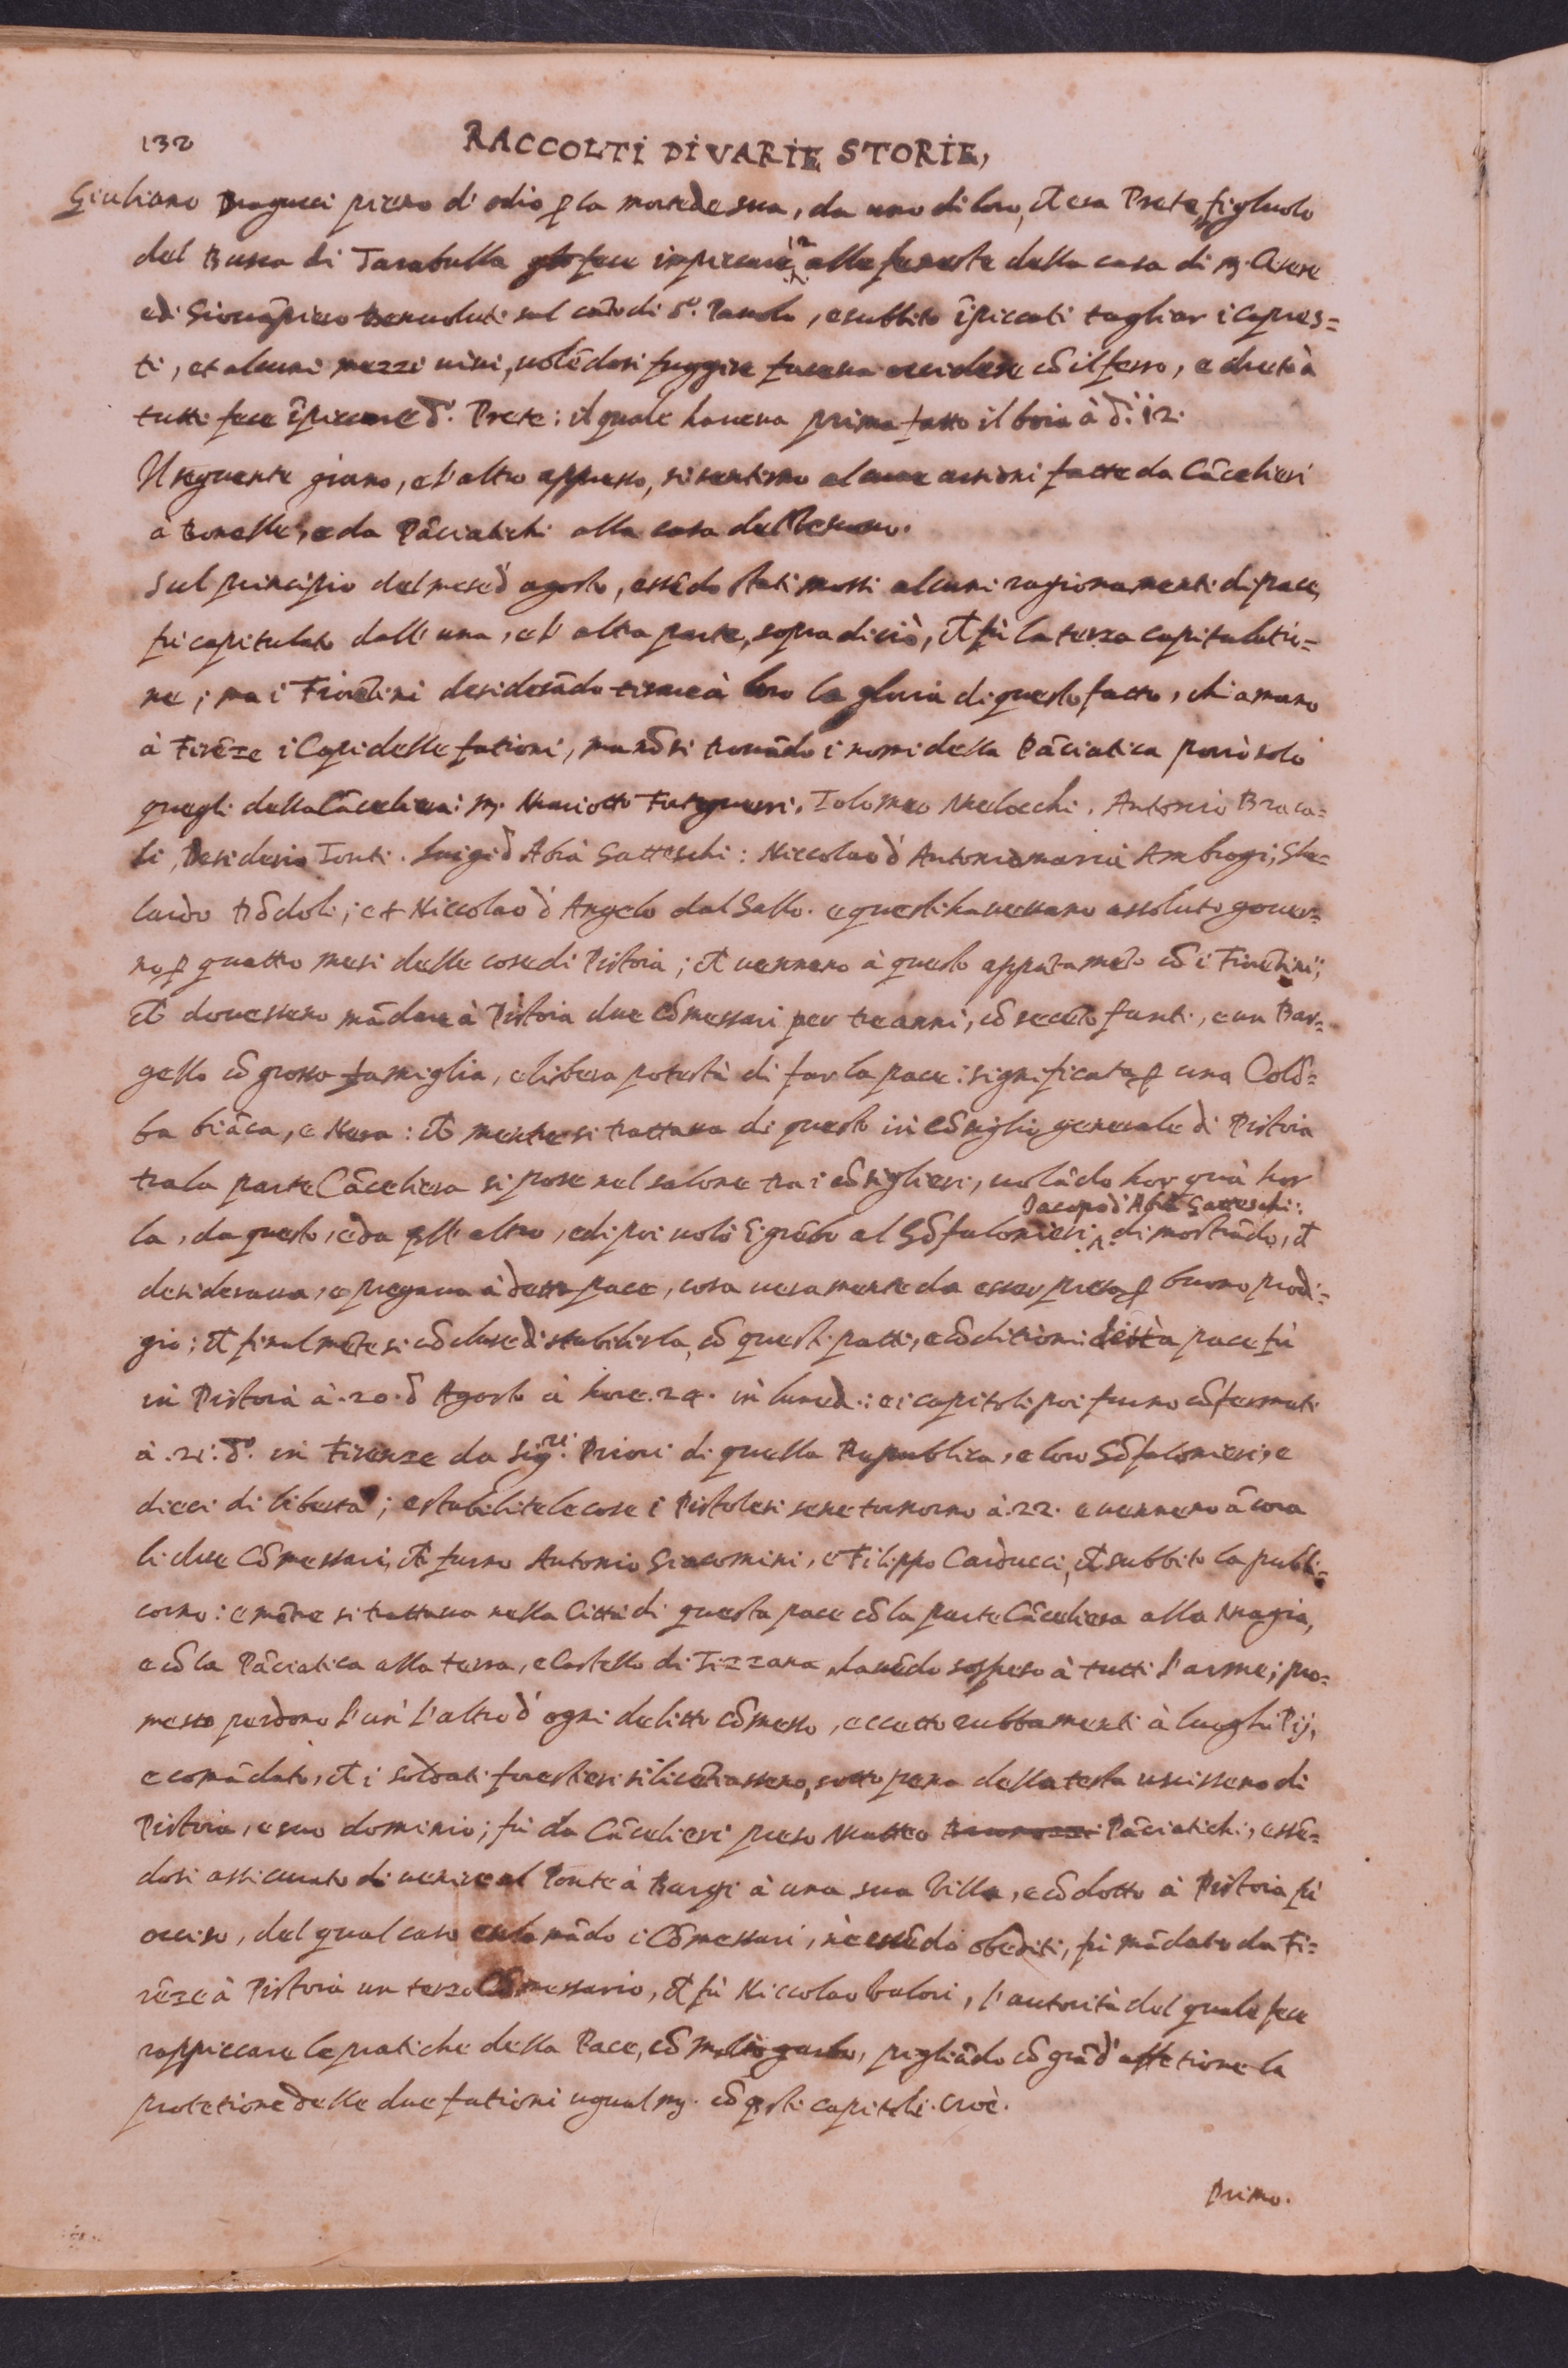 132
RACCOLTI DI VARIE STORIE,
Giuliano Dragucci pieno di odio ꝑ la morte de sua, da uno di loro, cħ era Prete, figluolo
del Busca di Tarabulla glo fece impiccare 12 alle fenestre della casa di m. Cesere
e di Giovãpiero Benvoluti sul cãto di S. Pauolo, e subbito ĩpiccati tagliar i capres=
ti, et alcuni mezzi vivi, volẽdosi fuggire faceva occidere cõ il ferro, e drieto à
tutti fece ĩpiccare d.º Prete: il quale haveva prima fatto il boia à d.i 12.
Il seguente giorno, e l'altro appresso, si sentirno alcune arsioni fatte da Cãcelieri
à Bonelle, e da Pãciatichi alla casa del Vescovo.
Sul principio del mese d' agosto, essẽdo stati mossi alcuni ragionamenti di pace,
fu capitulato dall' una, e l' altra parte, sopra di ciò, cħ fù la terza capitulatio=
ne; ma i Fiorẽtini desiderãdo tirare à loro la gloria di questo fatto, chiamorno
à Firẽze i Capi delle fationi, ma nõ si trovãdo i nomi della Pãciatica porrò solo
quegli della Cãceliera: m. Mariotto Forteguerri. Tolomeo Melocchi. Antonio Braca=
li, Desiderio Tonti. Luigi d' Abrã Gatteschi: Niccolao d' Antonio maria Ambrogi; Ste=
laido Fiõdoli; et Niccolao d' Angelo dal Gallo. e questi havevano assoluto gover=
no ꝑ quattro mesi delle cose di Pistoia; cħ vennero à questo apputamẽto cõ i Fiorẽtini;
cħ dovessero mãdare à Pistoia due Cõmessari per tre anni, cõ secẽto fanti, e un Bar=
gello cõ grossa famiglia, e libera potestà di far la pace: significata ꝑ una Colõ=
ba biãca, e Nera: cħ mentre si trattava di questo in Cõsiglio generale di Pistoia
tra la parte Cãceliera si pose nel salone tra i cõsiglieri, volãdo hor quà hor
la, da questo, e da qll' altro, e di poi volò ĩ grẽbo al Gõfalonieri Iacopo d' Abrã Gatteschi: dimostrãdo, cħ
desiderava, e pregava à detta pace, cosa veramente da esser presa ꝑ buono prodi=
gio; cħ finalmẽte si cõcluse di stabilirla, cõ questi patti, e cõditioni detta pace fù
in Pistoia à .20. d' Agosto à hore .24. in luned.: e i capitoli poi furno cõfermati
à .21. d.º in Firenze da Sig.ri Priori di quella Republica, e loro Gõfalonieri, e
dieci di libertà; e stabilite le cose i Pistolesi se ne tornorno à .22. e vennero ãcora
li due Cõmessari, cħ furno Antonio Giacomini, e Filippo Carducci, cħ subbito la publi=
corno: e mẽtre si trattava nella Città di questa pace cõ la parte Cãceliera alla Magia,
e cõ la Pãciatica alla terra, e Castello di Tizzana, havẽdo sospeso à tutti l'arme; pro=
messo perdono l'un' l'altro d' ogni delitto cõmesso, eccetto rubbamenti à luoghi Pij,
e comãdato, cħ i soldati forestieri si licẽtiassero, sotto pena della testa uscissero di
Pistoia, e suo dominio; fù da Cãcelieri preso Matteo Pãciatichi, essẽ=
dosi assicurato di venire al Ponte à Burgi à una sua Villa, e cõdotto à Pistoia fù
occiso, del qual caso esclamãdo i Cõmessari, nè essẽdo obediti, fù mãdato da Fi=
rẽze à Pistoia un terzo Cõmessario, cħ fù Niccolao Valori, l'autorità del quale fece
rappiccare le pratiche della Pace, cõ molto garbo, pigliãdo cõ grãd' affetione la
protetione delle due fationi ugualm. cõ qsti capitoli. Cioè.
Primo.